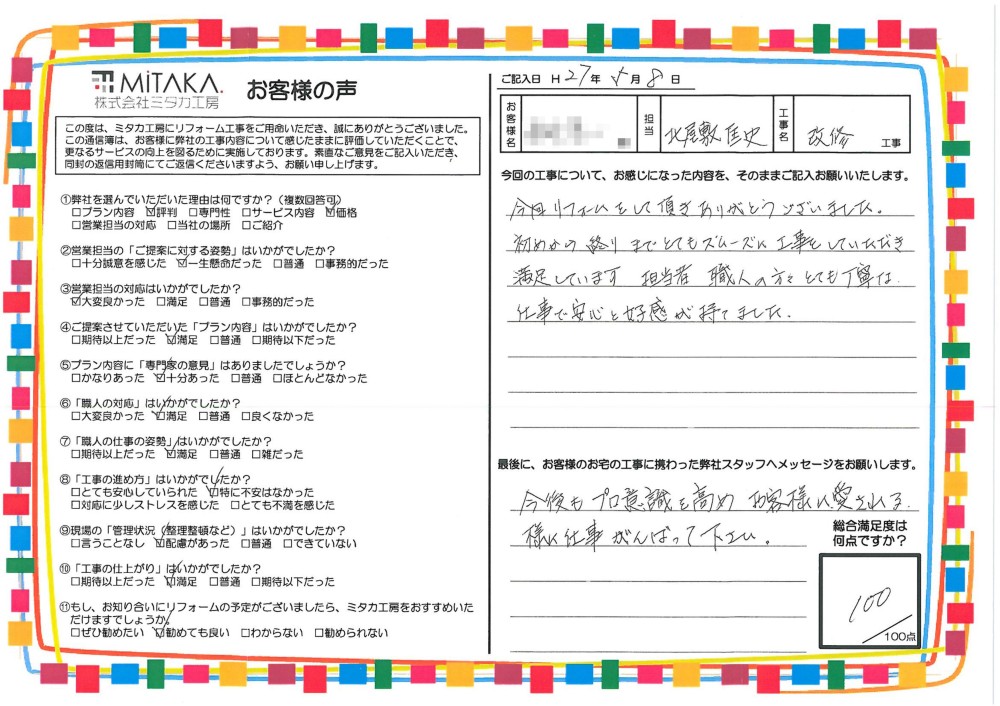 MiTAKA.
株式会社ミタカ工房
お客様の声
この度は、ミタカ工房にリフォーム工事をご用命いただき、誠にありがとうございました。
この通信簿は、お客様に弊社の工事内容について感じたままに評価していただくことで、
更なるサービスの向上を図るために実施しております。素直なご意見をご記入いただき、
同封の返信用封筒にてご返信くださいますよう、お願い申し上げます。
①弊社を選んでいただいた理由は何ですか?(複数回答可)
□プラン内容 ☑評判 □専門性 □サービス内容 ☑価格
□営業担当の対応 □当社の場所 □ご紹介
②営業担当の「ご提案に対する姿勢」はいかがでしたか?
□十分誠意を感じた ☑一生懸命だった □普通 □事務的だった
③営業担当の対応はいかがでしたか?
☑大変良かった □満足 □普通 □事務的だった
④ご提案させていただいた「プラン内容」はいかがでしたか?
□期待以上だった ☑満足 □普通 □期待以下だった
⑤プラン内容に「専門家の意見」はありましたでしょうか?
□かなりあった ☑十分あった □普通 □ほとんどなかった
⑥「職人の対応」はいかがでしたか?
□大変良かった ☑満足 □普通 □良くなかった
⑦「職人の仕事の姿勢」はいかがでしたか?
□期待以上だった ☑満足 □普通 □雑だった
⑧「工事の進め方」はいかがでしたか?
□とても安心していられた ☑特に不安はなかった
□対応に少しストレスを感じた □とても不満を感じた
⑨現場の「管理状況(整理整頓など)」はいかがでしたか?
□言うことなし ☑配慮があった □普通 □できていない
⑩「工事の仕上がり」はいかがでしたか?
□期待以上だった ☑満足 □普通 □期待以下だった
⑪もし、お知り合いにリフォームの予定がございましたら、ミタカ工房をおすすめいた
だけますでしょうか?
□ぜひ勧めたい ☑勧めても良い □わからない □勧められない
ご記入日 H27年 5月 8日
お客様名
担当 北屋敷 佳史
工事名 改修 工事
今回の工事について、お感じになった内容を、そのままご記入お願いいたします。
今回リフォームをして頂きありがとうございました。
初めから終りまでとてもスムーズに工事をしていただき
満足しています 担当者 職人の方々とても丁寧な
仕事で安心と好感が持てました。
最後に、お客様のお宅の工事に携わった弊社スタッフへメッセージをお願いします。
今後もプロ意識を高めお客様に愛される
様に仕事がんばって下さい。
総合満足度は
何点ですか?
100
100点